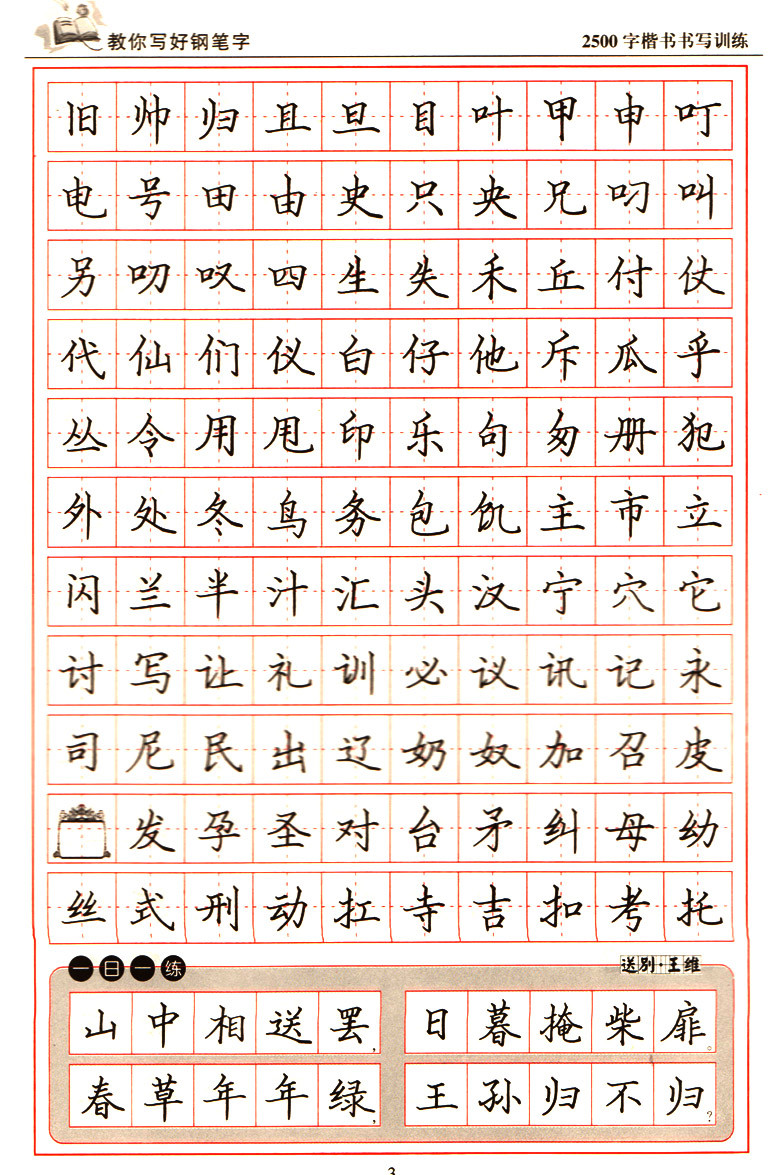 教你写好钢笔字 2500字楷书书写训练
旧帅归且旦目叶甲申叮
电号田由史只央兄叼叫
另叨叹四生失禾丘付仗
代仙们仪白仔他斥瓜乎
丛令用甩印乐句匆册犯
外处冬鸟务包饥主市立
闪兰半汁汇头汉宁穴它
讨写让礼训必议讯记永
司尼民出辽奶奴加召皮
发孕圣对台矛纠母幼
丝式刑动扛寺吉扣考托
一日一练 送别·王维
山中相送罢,日暮掩柴扉。
春草年年绿,王孙归不归?
3